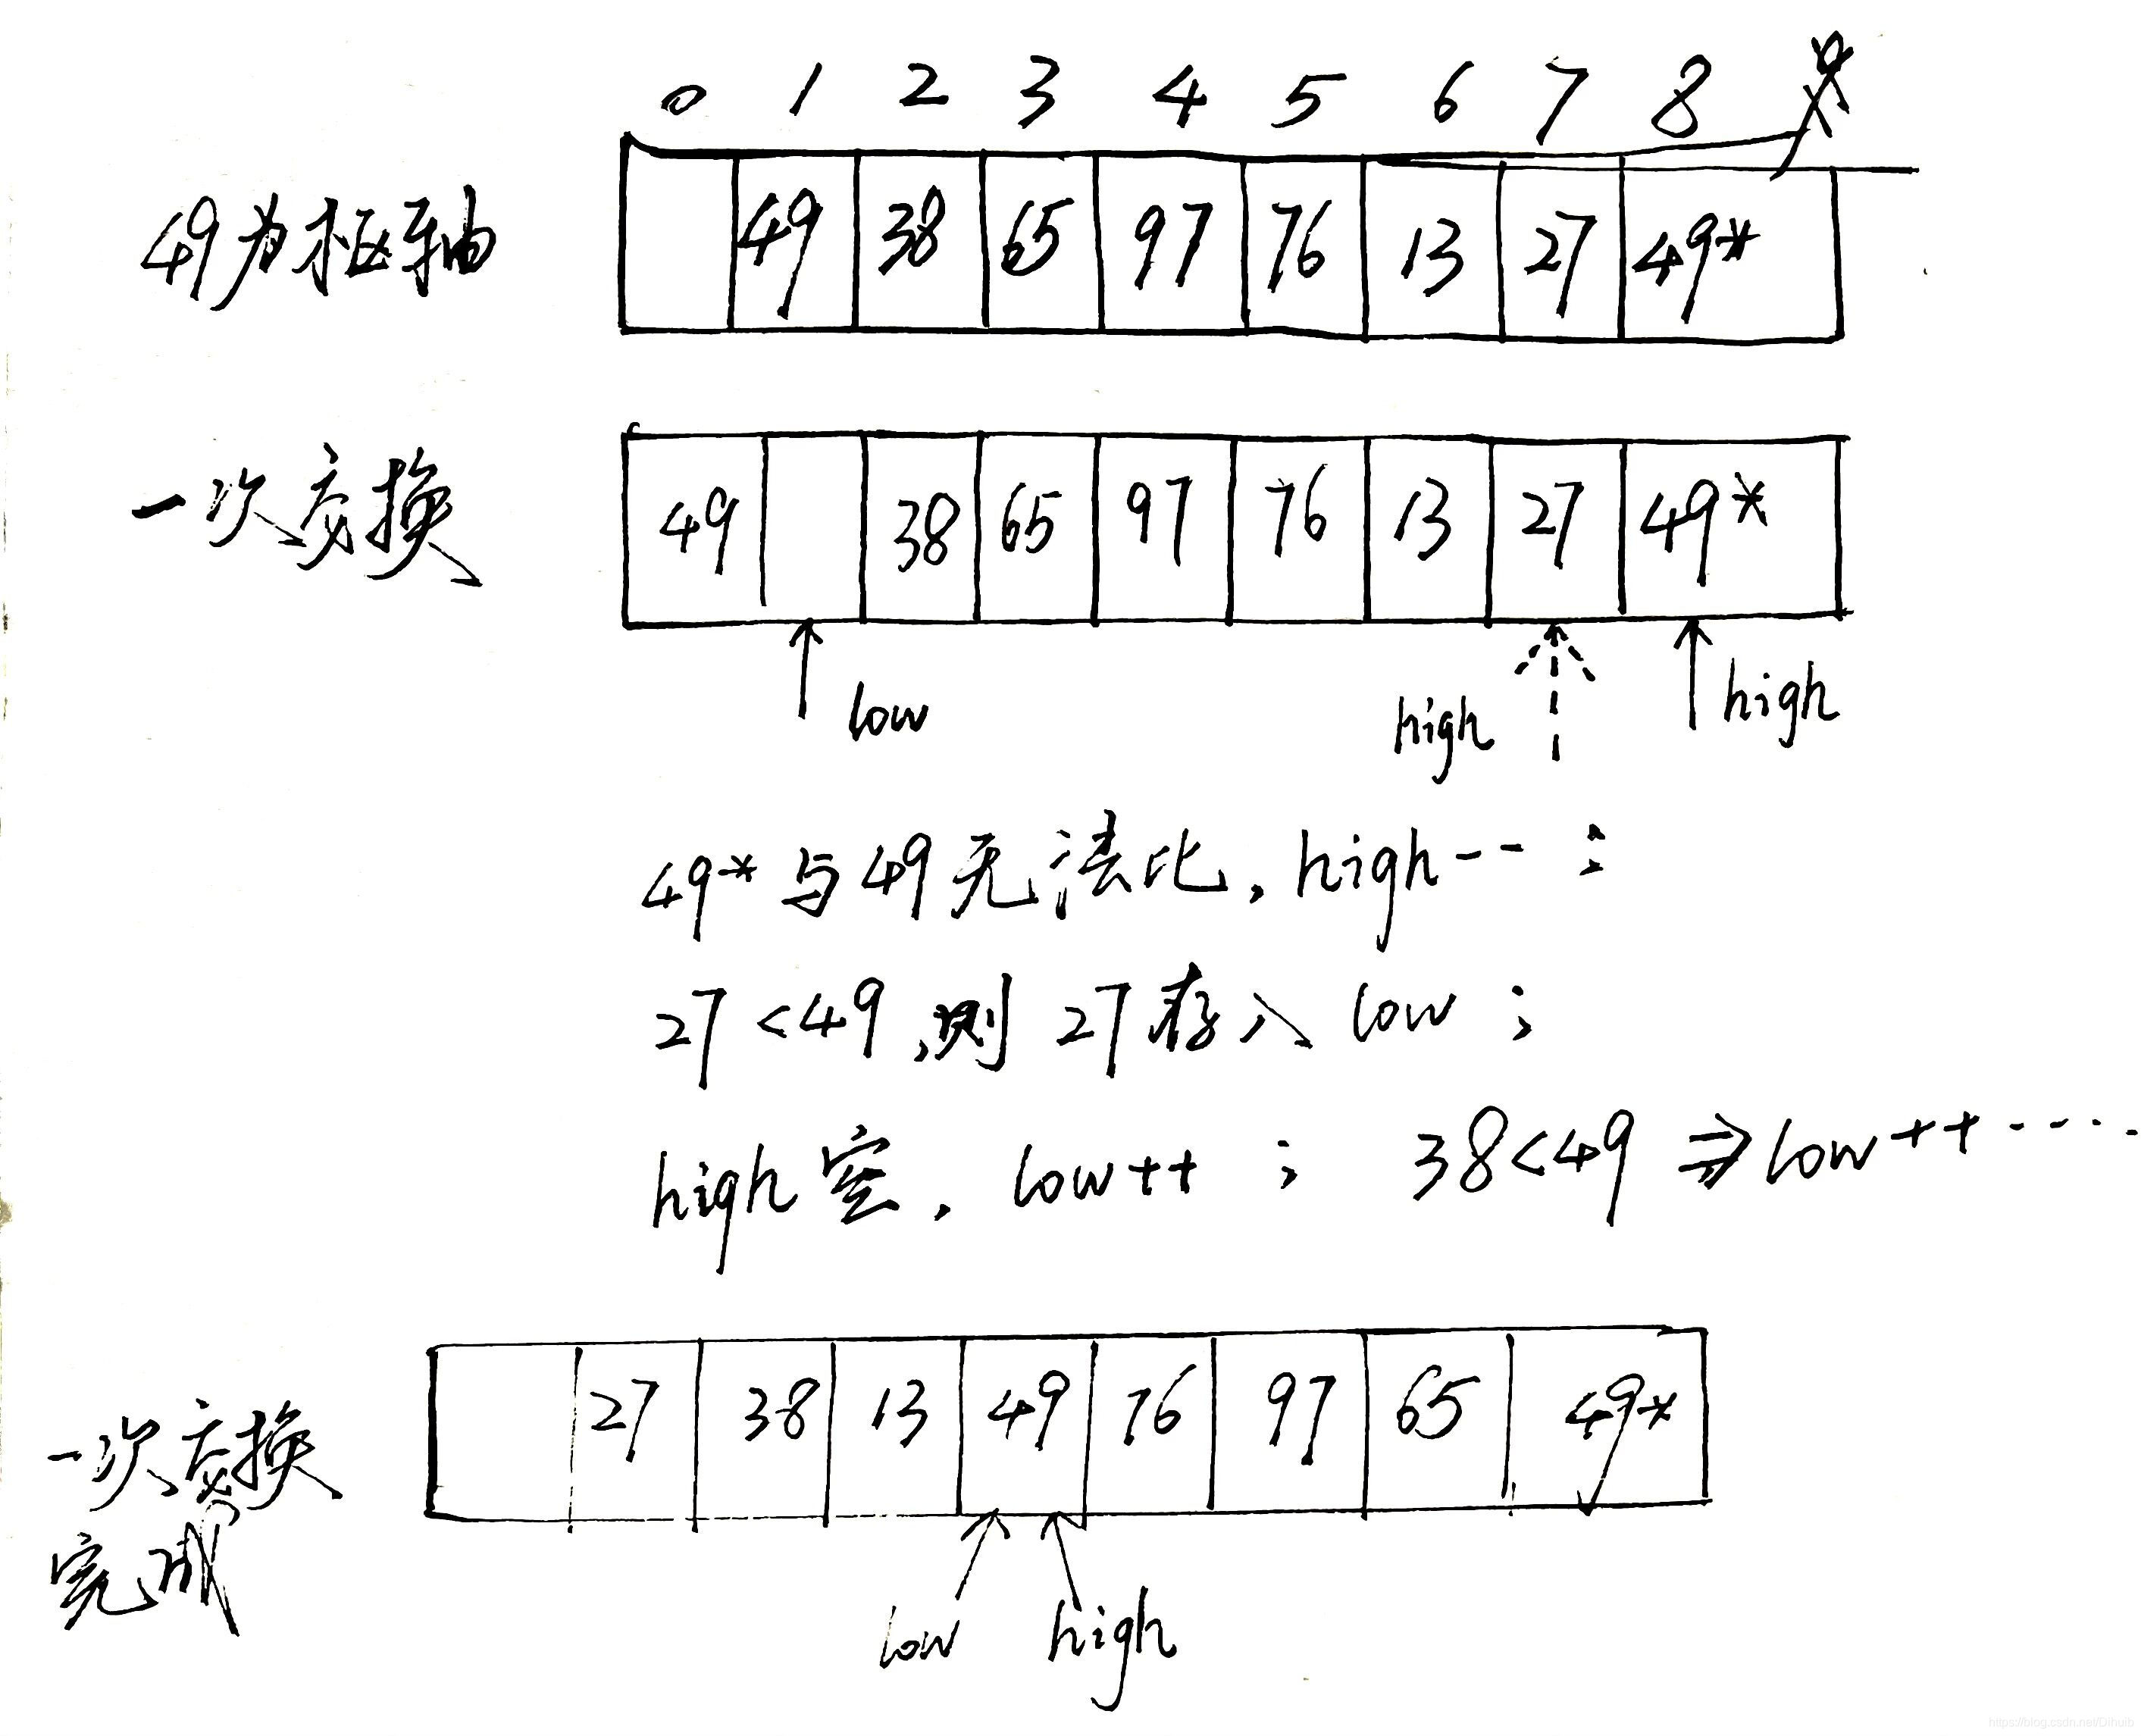 0 1 2 3 4 5 6 7 8
49为枢轴 49 38 65 97 76 13 27 49*
一次交换 49 38 65 97 76 13 27 49*
low high high
49*与49无法比,high--;
27<49,则27存入low;
high空,low++; 38<49⇒low++-----
一次交换 27 38 13 49 76 97 65 49*
完成
low high
https://blog.csdn.net/Dihuib